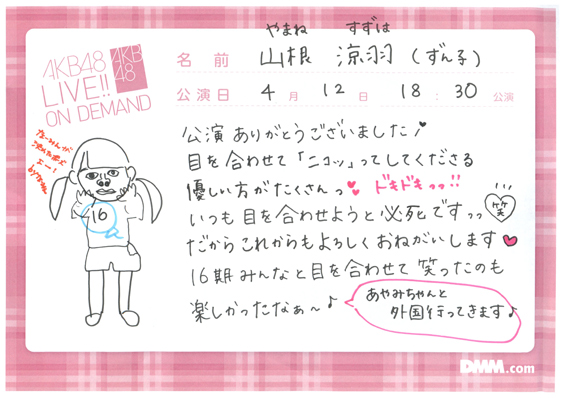 AKB48
LIVE!!
ON DEMAND
AKB
48
やまね すずは
名前 山根 涼羽 (ずん子)
公演日 4月 12日 18:30 公演
公演ありがとうございました!
目を合わせて「ニコッ」ってしてくださる
優しい方がたくさんっ ドキドキっっ!!
いつも目を合わせようと必死ですっっ 笑
だからこれからもよろしくおねがいします
16期みんなと目を合わせて笑ったのも
楽しかったなぁ〜♪
あやみちゃんと
外国行ってきます♪
16
DMM.com